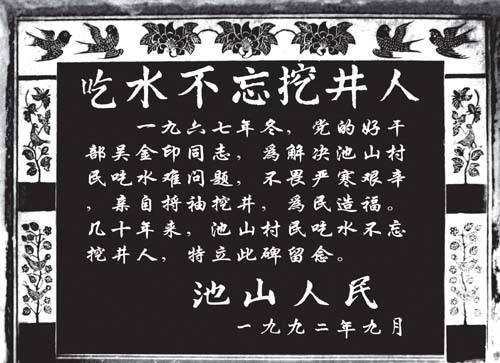 吃水不忘挖井人
一九六七年冬，党的好干
部吴金印同志，为解决池山村
民吃水难问题，不畏严寒艰辛
，亲自捋袖挖井，为民造福。
几十年来，池山村民吃水不忘
挖井人，特立此碑留念。
池山人民
一九九二年九月